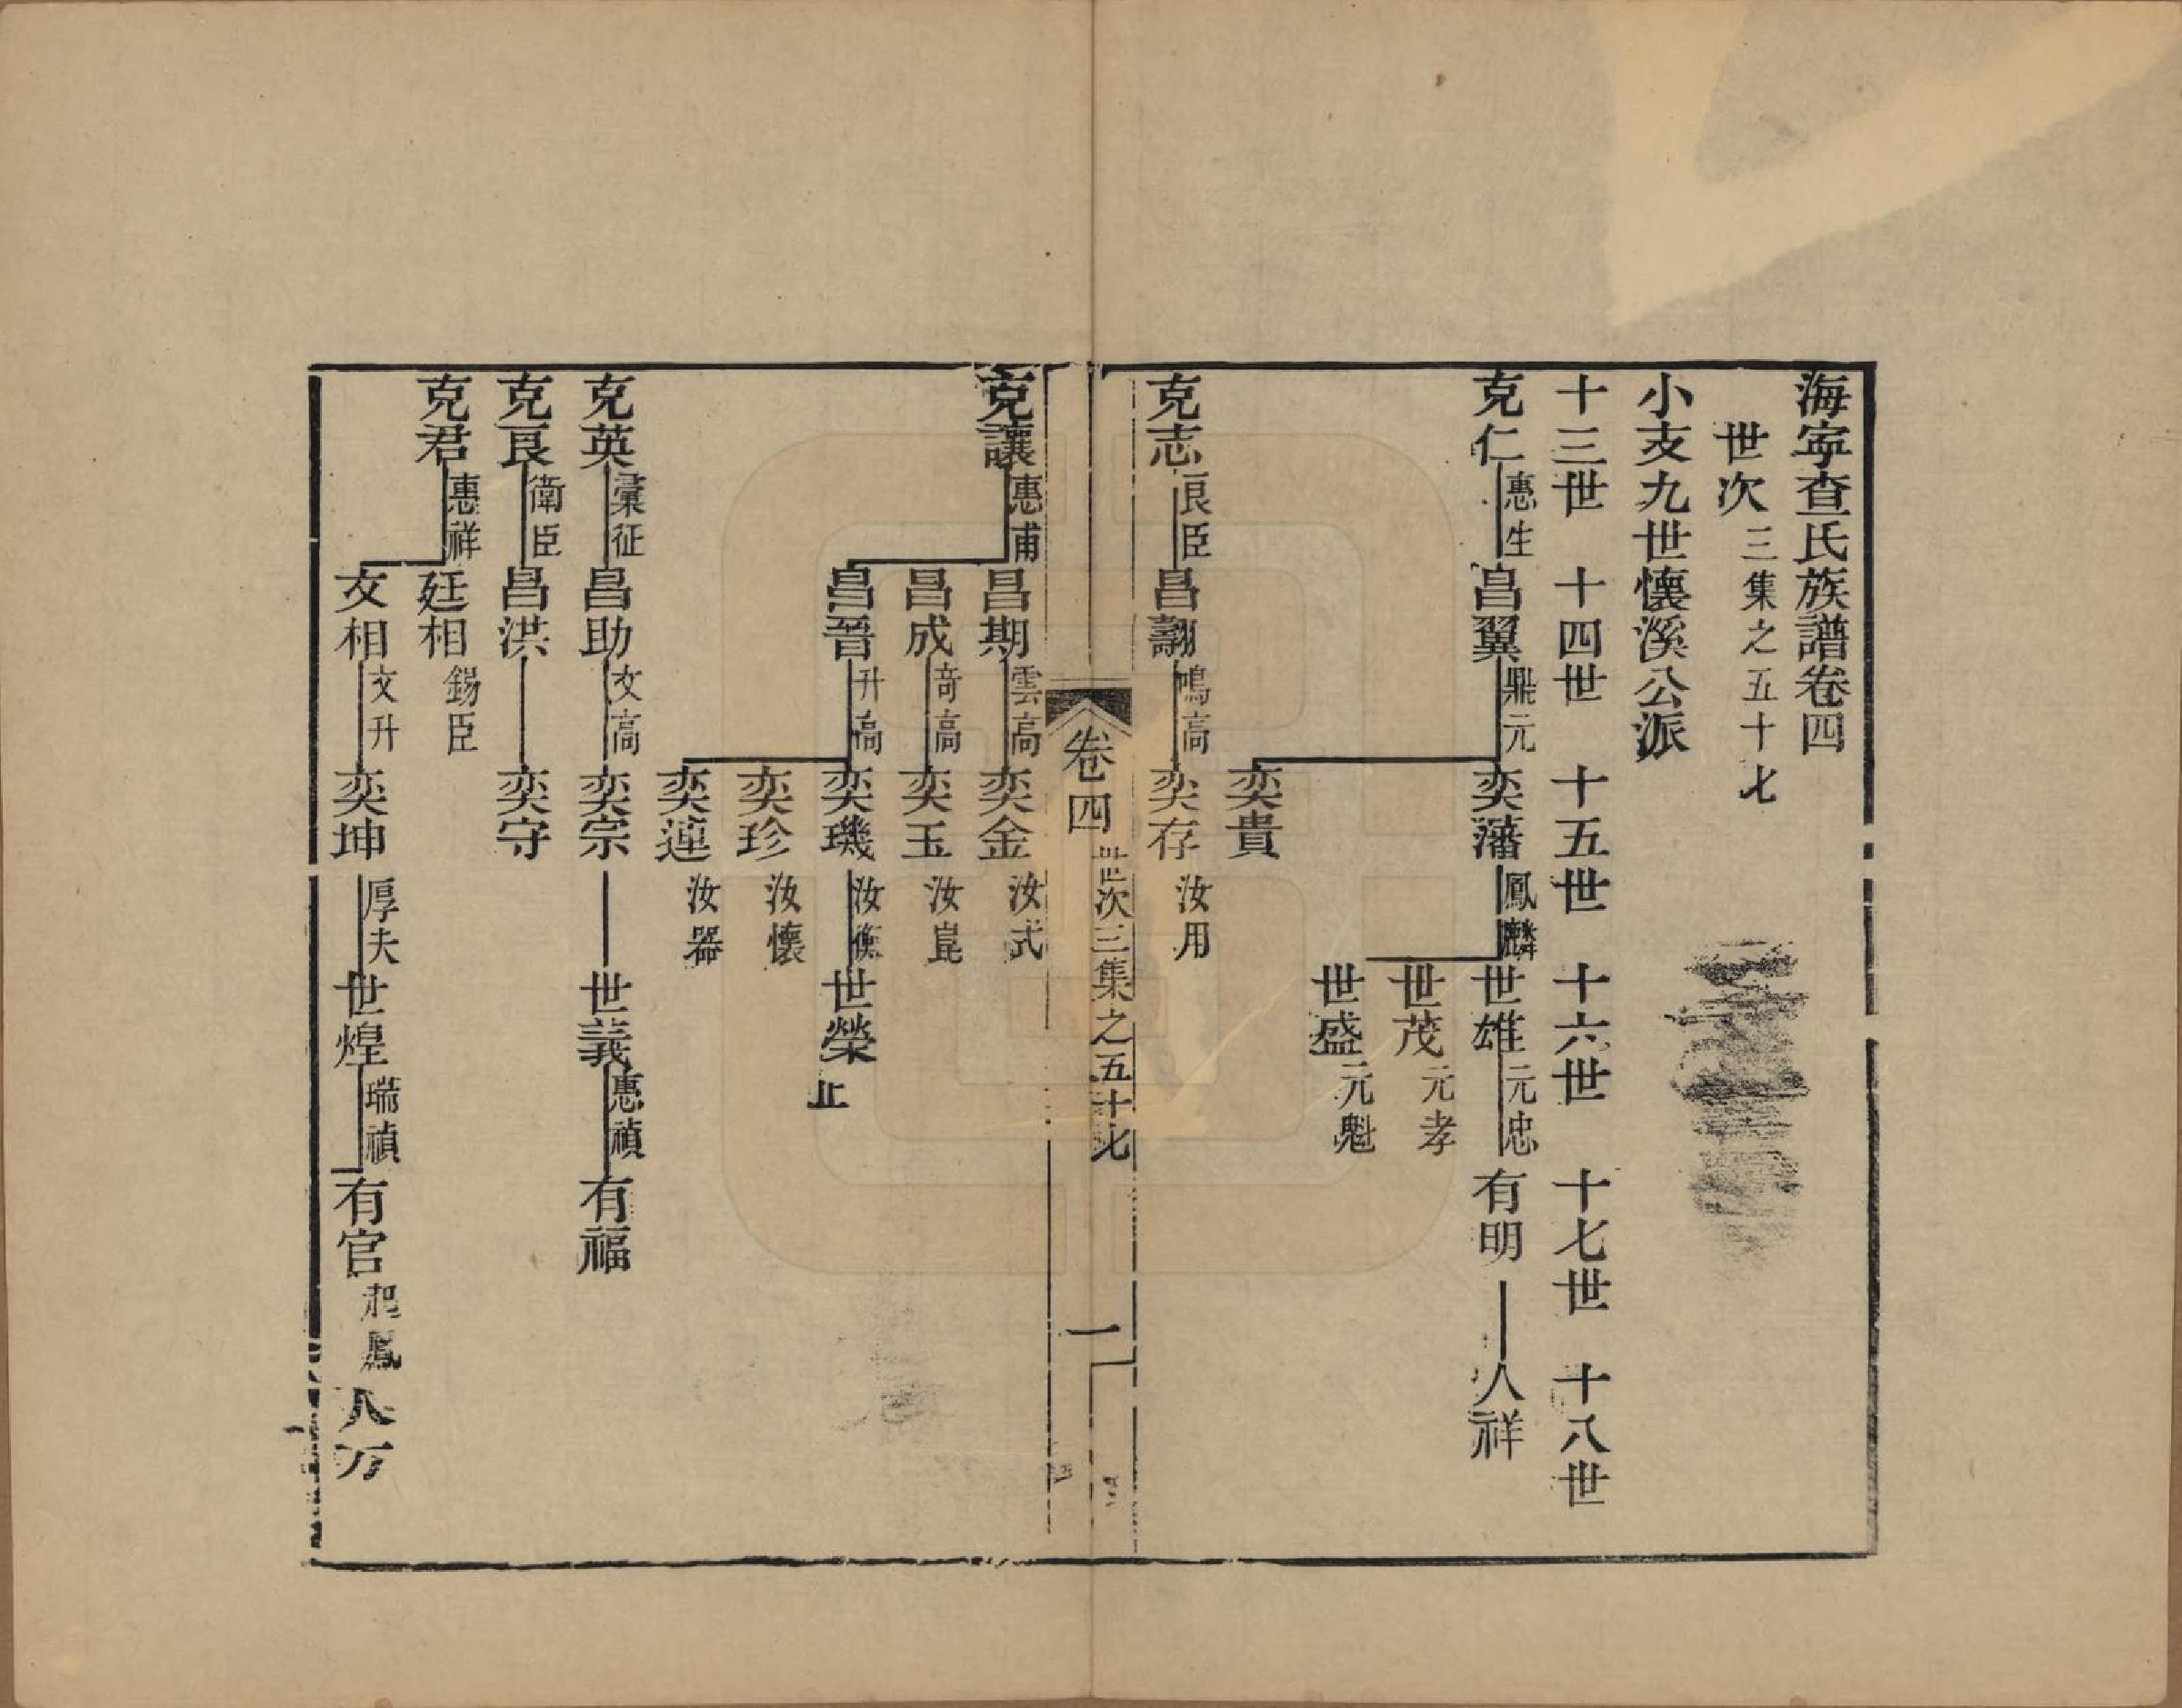 海寧查氏族譜卷四
世次三集之五十七
小支九世懷溪公派
十三世 十四世 十五世 十六世 十七世 十八世
克仁 惠生 昌翼 鼎元 奕藩 鳳麟 世雄 元忠 有明 人祥
世茂 元孝
世盛 元魁
奕貴
克志 良臣 昌翿 鳴高 奕存 汝用
卷四 世次三集之五十七 一
克讓 惠甫 昌期 雲高 奕金 汝式
昌成 奇高 奕玉 汝崑
昌晉 升高 奕璣 汝衡 世榮 止
奕珍 汝懷
奕蓮 汝器
克英 彙征 昌助 文高 奕宗 世義 惠禎 有福
克良 衛臣 昌洪 奕守
克君 惠祥 廷相 錫臣
文相 文升 奕坤 厚夫 世煌 瑞禎 有官 起鳳 人万